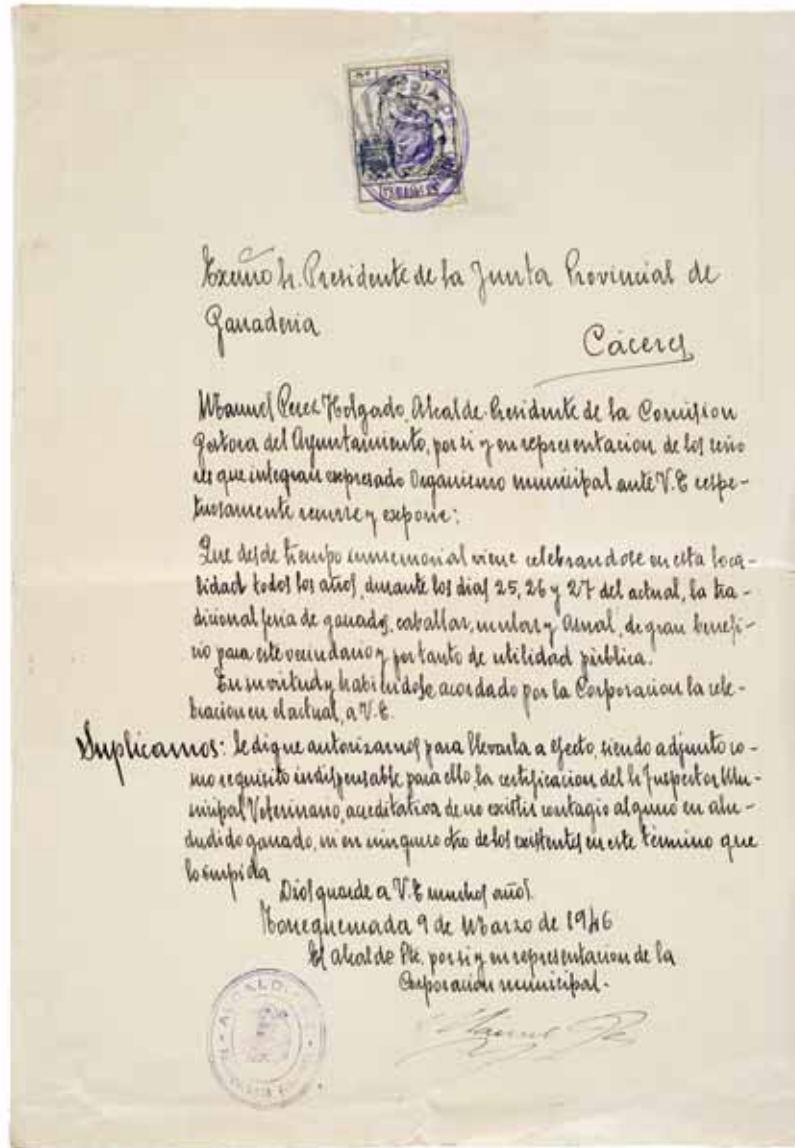 Excmo Sr. Presidente de la Junta Provincial de
Ganaderia
Cáceres
Manuel Perez Holgado, Alcalde-Presidente de la Comision
gestora del Ayuntamiento, por si y en representacion de los seño
res que integran expresado Organismo municipal ante V.E respe-
tuosamente recurre y expone:
Que desde tiempo inmemorial viene celebrandose en esta loca-
lidad todos los años, durante los dias 25, 26 y 27 del actual, la tra-
dicional feria de ganados, caballar, mular y asnal, de gran benefi-
cio para este vecindario y por tanto de utilidad pública.
En su virtud y habiendose acordado por la Corporacion la cele-
bracion en el actual, a V.E.
Suplicamos: Se digne autorizarnos para llevarla a efecto, siendo adjunto co-
mo requisito indispensable para ello, la certificacion del Sr Inspector Mu-
nicipal Veterinario, acreditativa de no existir contagio alguno en alu-
dudido ganado, ni en ninguno otro de los existentes en este término que
lo impida
Dios guarde a V.E muchos años.
Torrequemada 9 de Marzo de 1946
El alcalde Pte. por si y en representacion de la
Corporacion municipal.-
Manuel
ALCALDIA